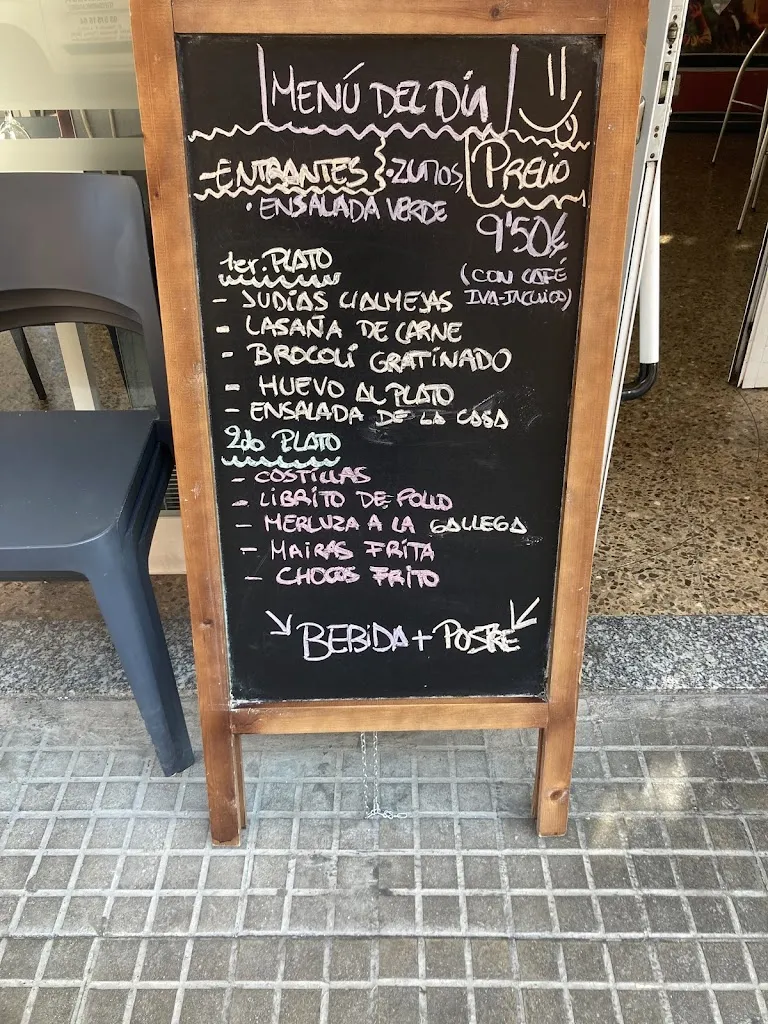 MENÚ DEL DÍA
-ENTRANTES
·ZUMOS,
PRECIO
· ENSALADA VERDE
9'50€
(CON CAFÉ
IVA-INCLUIDO)
1er. PLATO
- JUDÍAS Y ALMEJAS
- LASAÑA DE CARNE
- BROCOLÍ GRATINADO
- HUEVO AL PLATO
- ENSALADA DE LA CASA
2do PLATO
- COSTILLAS
- LIBRITO DE POLLO
- MERLUZA A LA GALLEGA
- MAIRAS FRITA
- CHOCOS FRITO
BEBIDA + POSTRE